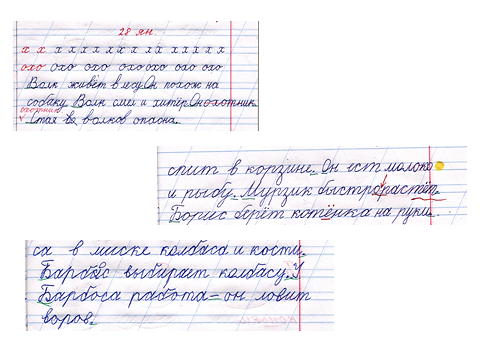 28 ян.
х х х х х х х х х х х х х х х
охо охо охо охо охо охо охо
Волк живёт в лесу Он похож на
собаку. Волк смел и хитёр Он охотник
охотник
Стая волков опасна.
спит в корзине. Он ест молоко
и рыбу. Мурзик быстро растёт.
Борис берёт котёнка на руки.
са в миске колбаса и кости.
Барбос выбирает колбасу. У
Барбоса работа - он ловит
воров.